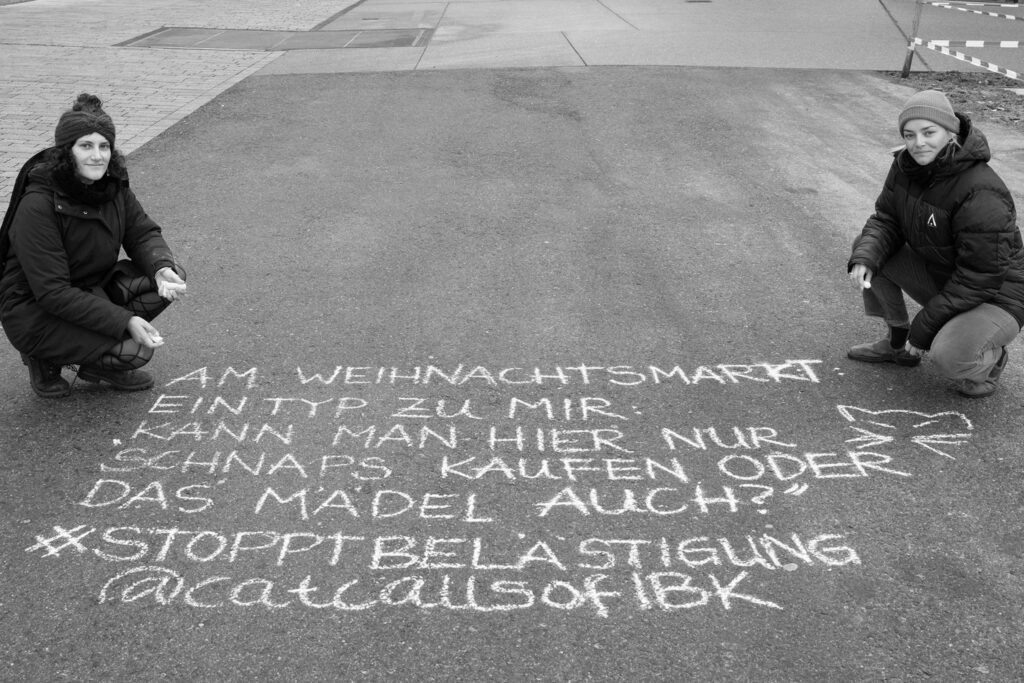 AM WEIHNACHTSMARKT:
EIN TYP ZU MIR:
KANN MAN HIER NUR
SCHNAPS KAUFEN ODER
DAS MÄDEL AUCH?"
#STOPPTBELÄSTIGUNG
@catcallsofIBK